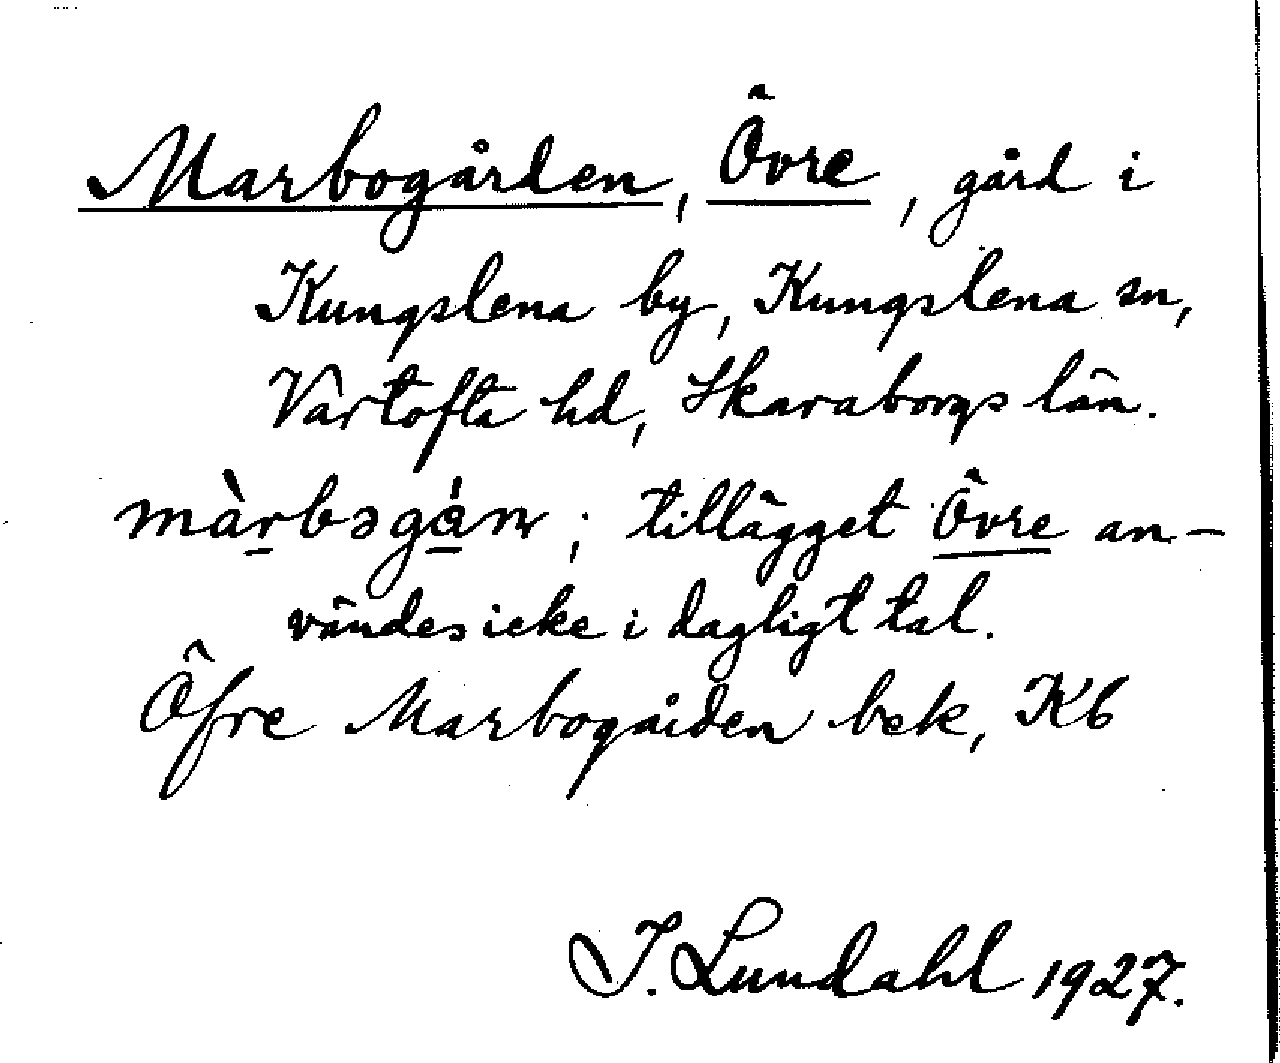 Marbogården, Övre, gård i
Kungslena by, Kungslena sn,
Vartofta hd, Skaraborgs län.
màrbəgán; tillägget Övre an-
vändes icke i dagligt tal.
Öfre Marbogården bek, Kb
I. Lundahl 1927.